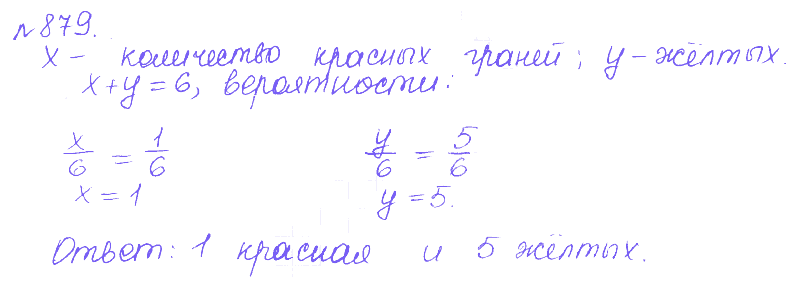 №879.
х – количество красных граней; у – жёлтых.
х+у=6, вероятности:
х/6 = 1/6 у/6 = 5/6
х=1 у=5.
Ответ: 1 красная и 5 жёлтых.